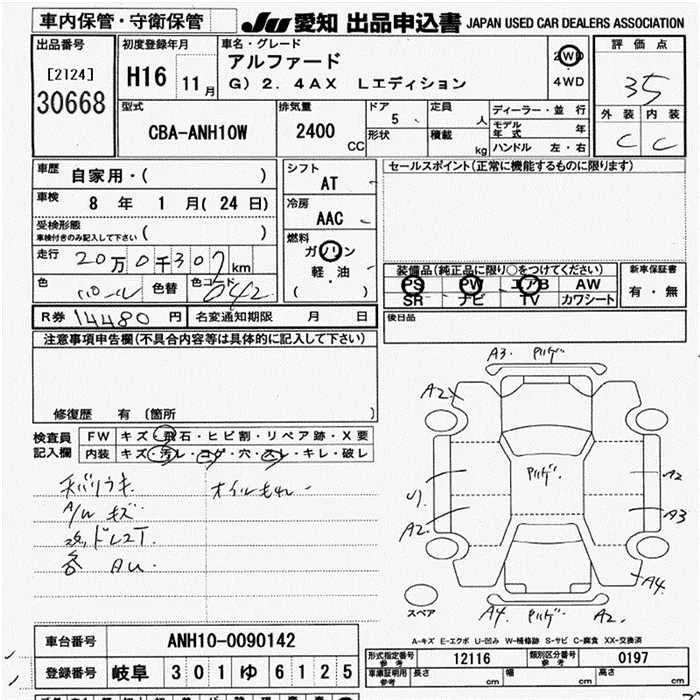 車内保管・守衛保管
JU 愛知 出品申込書 JAPAN USED CAR DEALERS ASSOCIATION
出品番号
[2124]
30668
初度登録年月
H16 11月
車名・グレード
アルファード
G) 2. 4AX Lエディション
2WD
4WD
評価点
35
外装 内装
C C
型式
CBA-ANH10W
排気量
2400 CC
ドア
5
形状
定員
人
積載
kg
ディーラー・並行
モデル年式 年
ハンドル 左・右
車歴
自家用・( )
車検
8 年 1 月( 24 日)
受検形態
車検付きのみ記入して下さい ( )
走行
20万0千307km
色
パール
色替
色コード
042
シフト
AT
冷房
AAC
燃料
ガソリン
軽・油
( )
セールスポイント(正常に機能するものに限ります)
装備品(純正品に限り○をつけてください)
PS PW エアB AW
SR ナビ TV カワシート
新車保証書
有・無
R券 14480 円
名変通知期限 月 日
後日品
注意事項申告欄(不具合内容等は具体的に記入して下さい)
修復歴 有 〔箇所 〕
検査員記入欄
FW キズ・飛石・ヒビ割・リペア跡・X要
内装 キズ・汚レ・コゲ・穴・スレ・キレ・破レ
A/W キズ
オイルもれ
各 AU.
A3.
A2
A2
A3
A2.
A4
A4.
A2.
スペア
A-キズ E-エクボ U-凹み W-補修跡 S-サビ C-腐食 XX-交換済
車台番号
ANH10-0090142
登録番号
岐阜 301 ゆ 6125
形式指定番号
参考
12116
類別区分番号
参考
0197
車庫証明用
参考
長さ cm
幅 cm
高さ cm